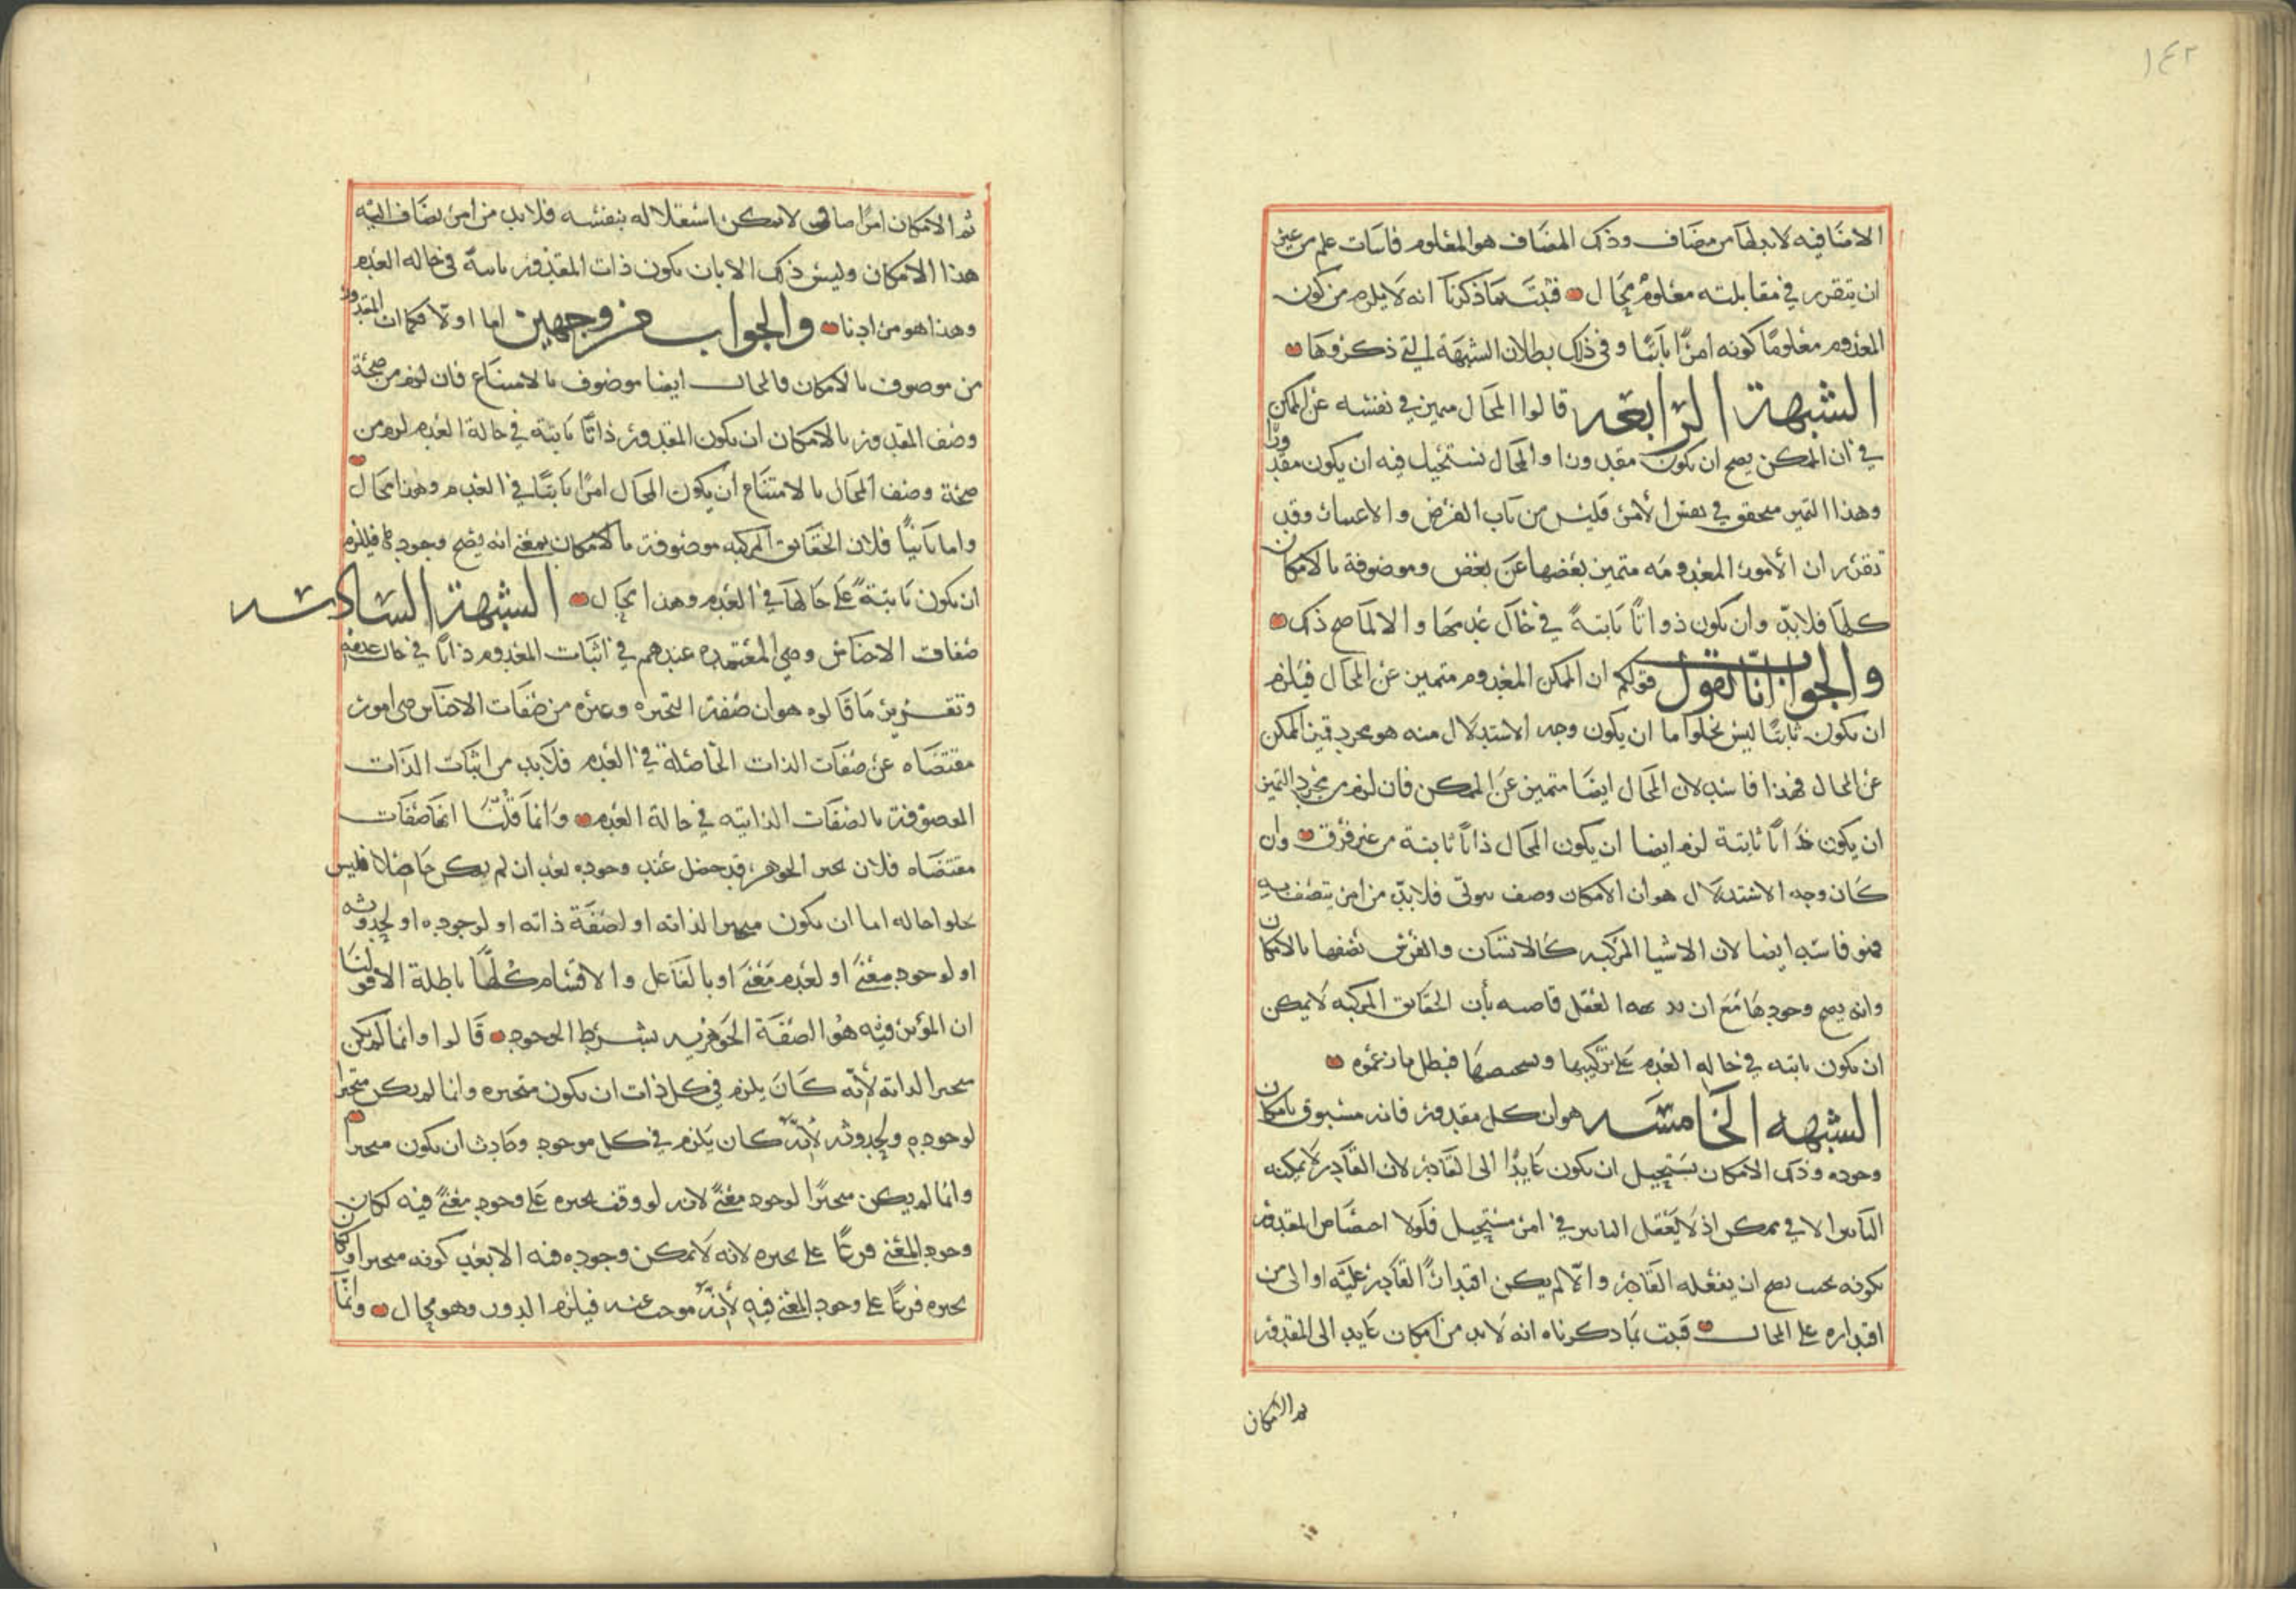 ١٤٢
الاضافيه لا بد لها من مضاف وذلك المضاف هو المعلوم فاثبات علم من غير
ان يتقرر في مقابلته معلوم محال فثبت بما ذكرنا انه لا يلزم من كون
المعدوم معلومًا كونه امرًا ثابتًا وفي ذلك بطلان الشبهة التي ذكروها
الشبهة الرابعه قالوا المحال متميز في نفسه عن الممكن
في ان الممكن يصح ان يكون مقدورا والمحال يستحيل فيه ان يكون مقدورًا
وهذا التميز متحقق في نفس الأمر فليس من باب الفرض والاعتبار وقد
تقرر ان الأمور المعدومه متميز بعضها عن بعض وموصوفة بالامكان
كلها فلا بدّ وان يكون ذواتًا ثابتةً في حال عدمها والا لما صح ذلك
والجواب انّا نقول قولكم ان الممكن المعدوم متميز عن المحال فيلزم
ان يكون ثابتًا ليس يخلوا ما ان يكون وجه الاستدلال منه هو مجرد تميز الممكن
عن المحال فهذا فاسد لان المحال ايضا متميز عن الممكن فان لزم من مجرد التميز
ان يكون ذاتًا ثابتة لزم ايضا ان يكون المحال ذاتًا ثابتة من غير فرق وان
كان وجه الاستدلال هو ان الامكان وصف ثبوتى فلا بدّ من امر يتصف به
فهو فاسد ايضا لان الاشيا المركبه كالانسان والفرس نصفها بالامكان
وانه يصح وجودها مع ان العقل قاضيه بأن الحقايق المركبه لا يمكن
ان يكون ثابته في حاله العدم على تركيبها فبطل ما زعموه
الشبهه الخامسه هو ان كل مقدور فانه مسبوق بامكان
وجوده وذلك الامكان يستحيل ان يكون عايدًا الى القادر لان القادر لا يمكنه
التاثير الا في ممكن اذ لا يعقل التاثير في امر مستحيل فلولا اختصاص المقدور
بكونه بحيث يصح ان يفعله القادر والّا لم يكن اقتدار القادر عليه اولى من
اقتداره على المحال فثبت بما ذكرناه انه لا بد من امكان عايد الى المقدور
ثم الامكان
ثم الامكان امرًا اضافى لا يمكن استقلاله بنفسه فلا بد من امر يضاف اليه
هذا الامكان وليس ذلك الا بان يكون ذات المقدور ثابتة في حاله العدم
وهذا هو مرادنا والجواب من وجهين اما اولًا فكما ان المقدور
من موصوف بالامكان فالمحال ايضا موصوف بالامتناع فان لزم من صحة
وصف المقدور بالامكان ان يكون المقدور ذاتًا ثابتة في حالة العدم لزم من
صحة وصف المحال بالامتناع ان يكون المحال امرًا ثابتًا في العدم وهذا محال
واما ثانيًا فلان الحقايق المركبه موصوفة بالامكان بمعنى انه يصح وجودها فيلزم
ان يكون ثابتةً على حالها في العدم وهذا محال الشبهة السادسه
صفات الاجناس وهي المعتمده عندهم في اثبات المعدوم ذاتًا في حال عدمه
وتقرير ما قالوه هو ان صفة التحيزه وغيره من صفات الاجناس هي امور
مقتضاه عن صفات الذات الحاصلة في العدم فلا بد من اثبات الذات
الموصوفة بالصفات الذاتيه في حالة العدم وانما قلنا انها صفات
مقتضاه فلان تحيز الجوهر قد حصل عند وجوده بعد ان لم يكن حاصلا فليس
يخلوا حاله اما ان يكون متحيزا لذاته او لصفة ذاته او لوجوده او لحدوثه
او لوجود معنًى او لعدم معنًى او بالفاعل والاقسام كلّها باطلة الا قولنا
ان المؤثر فيه هو الصفة الجوهريه بشرط الوجود قالوا وانما لم يكن
متحيزا لذاته لأنّه كان يلزم في كل ذات ان يكون متحيزه وانما لم يكن متحيزا
لوجوده ولحدوثه لأنّه كان يلزم في كل موجود وحادث ان يكون متحيزا
وانما لم يكن متحيزًا لوجود معنًى لانه لو وقف تحيزه على وجود معنًى فيه لكان
وجود المعنى فرعًا على تحيزه لانه لا يمكن وجوده فيه الا بعد كونه متحيزا وكان
تحيزه فرعًا على وجود المعنى فيه لأنّه موجب عنه فيلزم الدور وهو محال وانّما